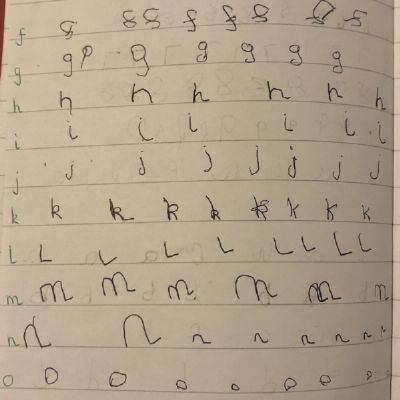 f 8 8 8 f f 8 8 f
g g p g g g g g
h h h h h h h
i i i i i i i
j j j j j j j j
k k k k k k k k k
L L L L L L L L L
m m m m m m m
n n n n n n n n n
o o o o o o o o o